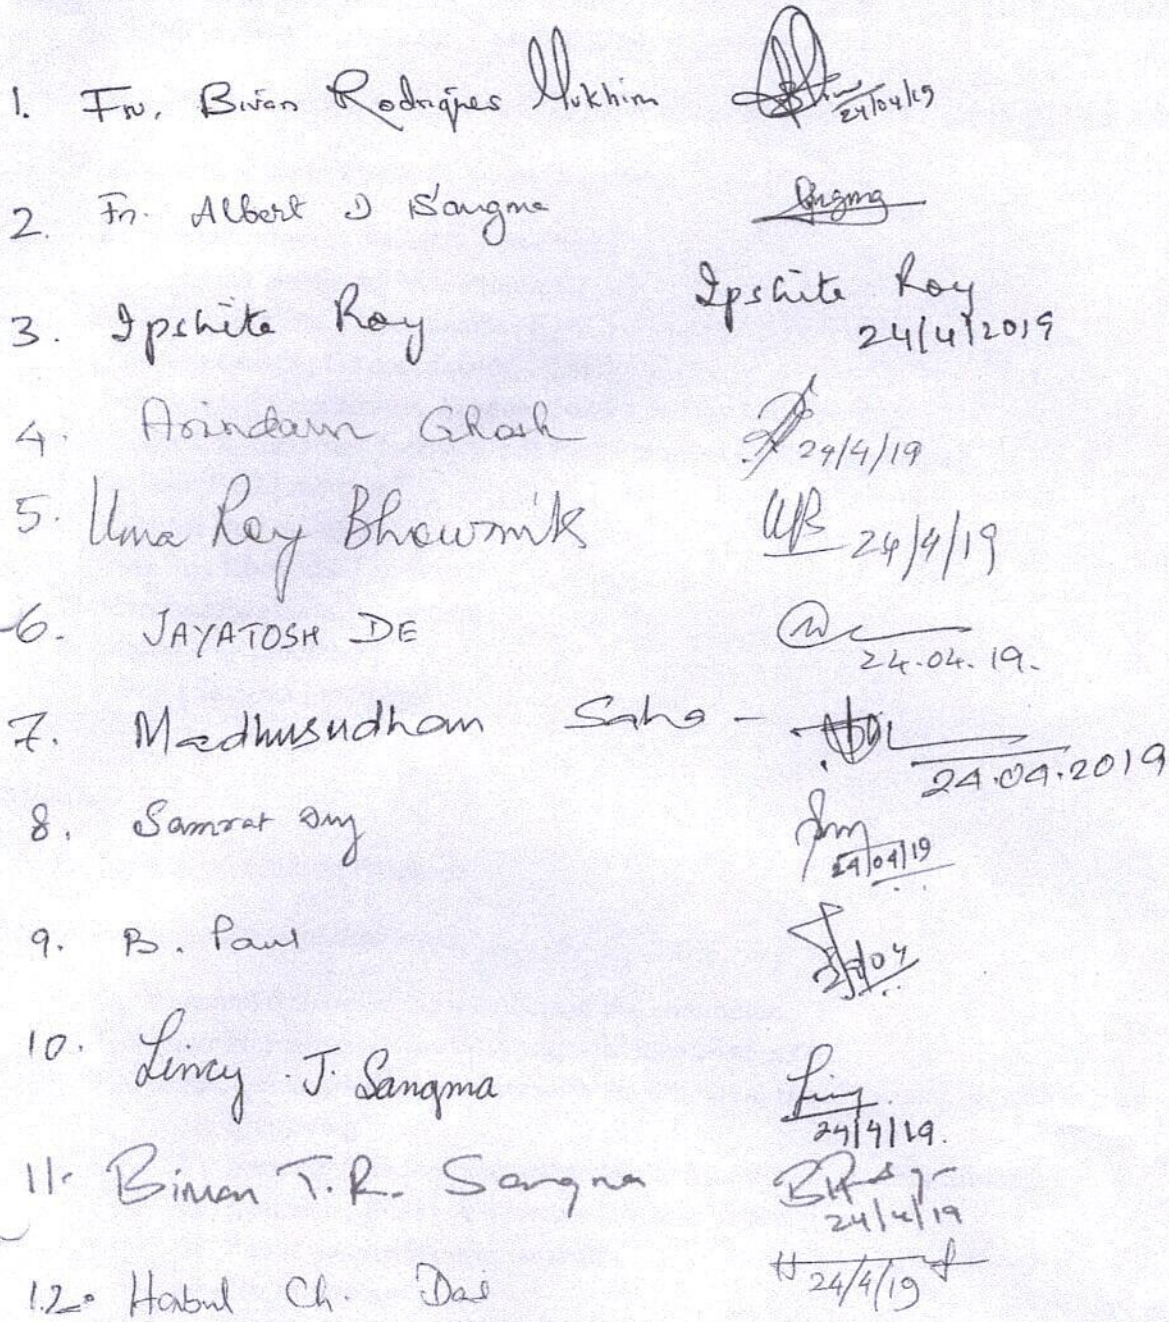 1. Fr. Bivan Rodriques Mukhim 24/04/19
2. Fr. Albert D Sangma Sangma
3. Ipshita Roy Ipshita Roy
24/4/2019
4. Arindam Ghosh 24/4/19
5. Uma Roy Bhowmik UB 24/4/19
6. JAYATOSH DE
24.04.19.
7. Madhusudhan Saha -
24.04.2019
8. Samrat Dey
24/04/19
9. B. Paul
24/04
10. Lincy J. Sangma
24/4/19.
11. Biman T.R. Sangma
24/4/19
12. Habul Ch. Das 24/4/19